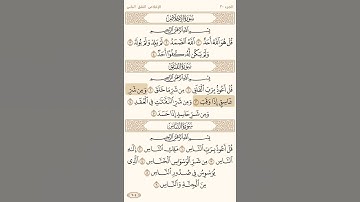 الجزء ٣٠ الإخلاص، الفلق، الناس
سُورَةُ الإِخْلَاصِ
بِسْمِ اللَّهِ الرَّحْمَٰنِ الرَّحِيمِ
قُلْ هُوَ اللَّهُ أَحَدٌ ١ اللَّهُ الصَّمَدُ ٢ لَمْ يَلِدْ وَلَمْ يُولَدْ ٣
وَلَمْ يَكُن لَّهُ كُفُوًا أَحَدٌ ٤
سُورَةُ الفَلَقِ
بِسْمِ اللَّهِ الرَّحْمَٰنِ الرَّحِيمِ
قُلْ أَعُوذُ بِرَبِّ الْفَلَقِ ١ مِن شَرِّ مَا خَلَقَ ٢ وَمِن شَرِّ
غَاسِقٍ إِذَا وَقَبَ ٣ وَمِن شَرِّ النَّفَّاثَاتِ فِي الْعُقَدِ ٤
وَمِن شَرِّ حَاسِدٍ إِذَا حَسَدَ ٥
سُورَةُ النَّاسِ
بِسْمِ اللَّهِ الرَّحْمَٰنِ الرَّحِيمِ
قُلْ أَعُوذُ بِرَبِّ النَّاسِ ١ مَلِكِ النَّاسِ ٢ إِلَٰهِ
النَّاسِ ٣ مِن شَرِّ الْوَسْوَاسِ الْخَنَّاسِ ٤ الَّذِي
يُوَسْوِسُ فِي صُدُورِ النَّاسِ ٥
مِنَ الْجِنَّةِ وَالنَّاسِ ٦
٦٠٤